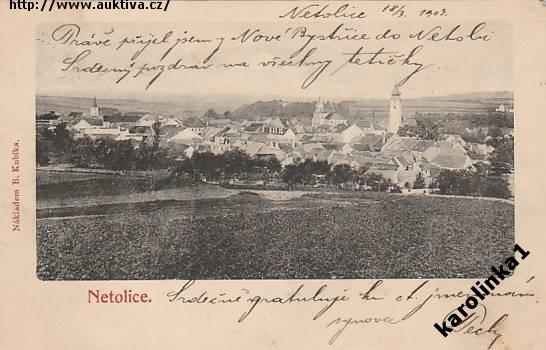 http://www.auktiva.cz/
Netolice 18/3 1903.
Právě přijel jsem z Nové Bystřice do Netolic
Srdečný pozdrav na všechny tetičky
Nákladem B. Kubika.
Netolice.
Srdečně gratuluje ku ct. jmeninám
synovec
karolinka1